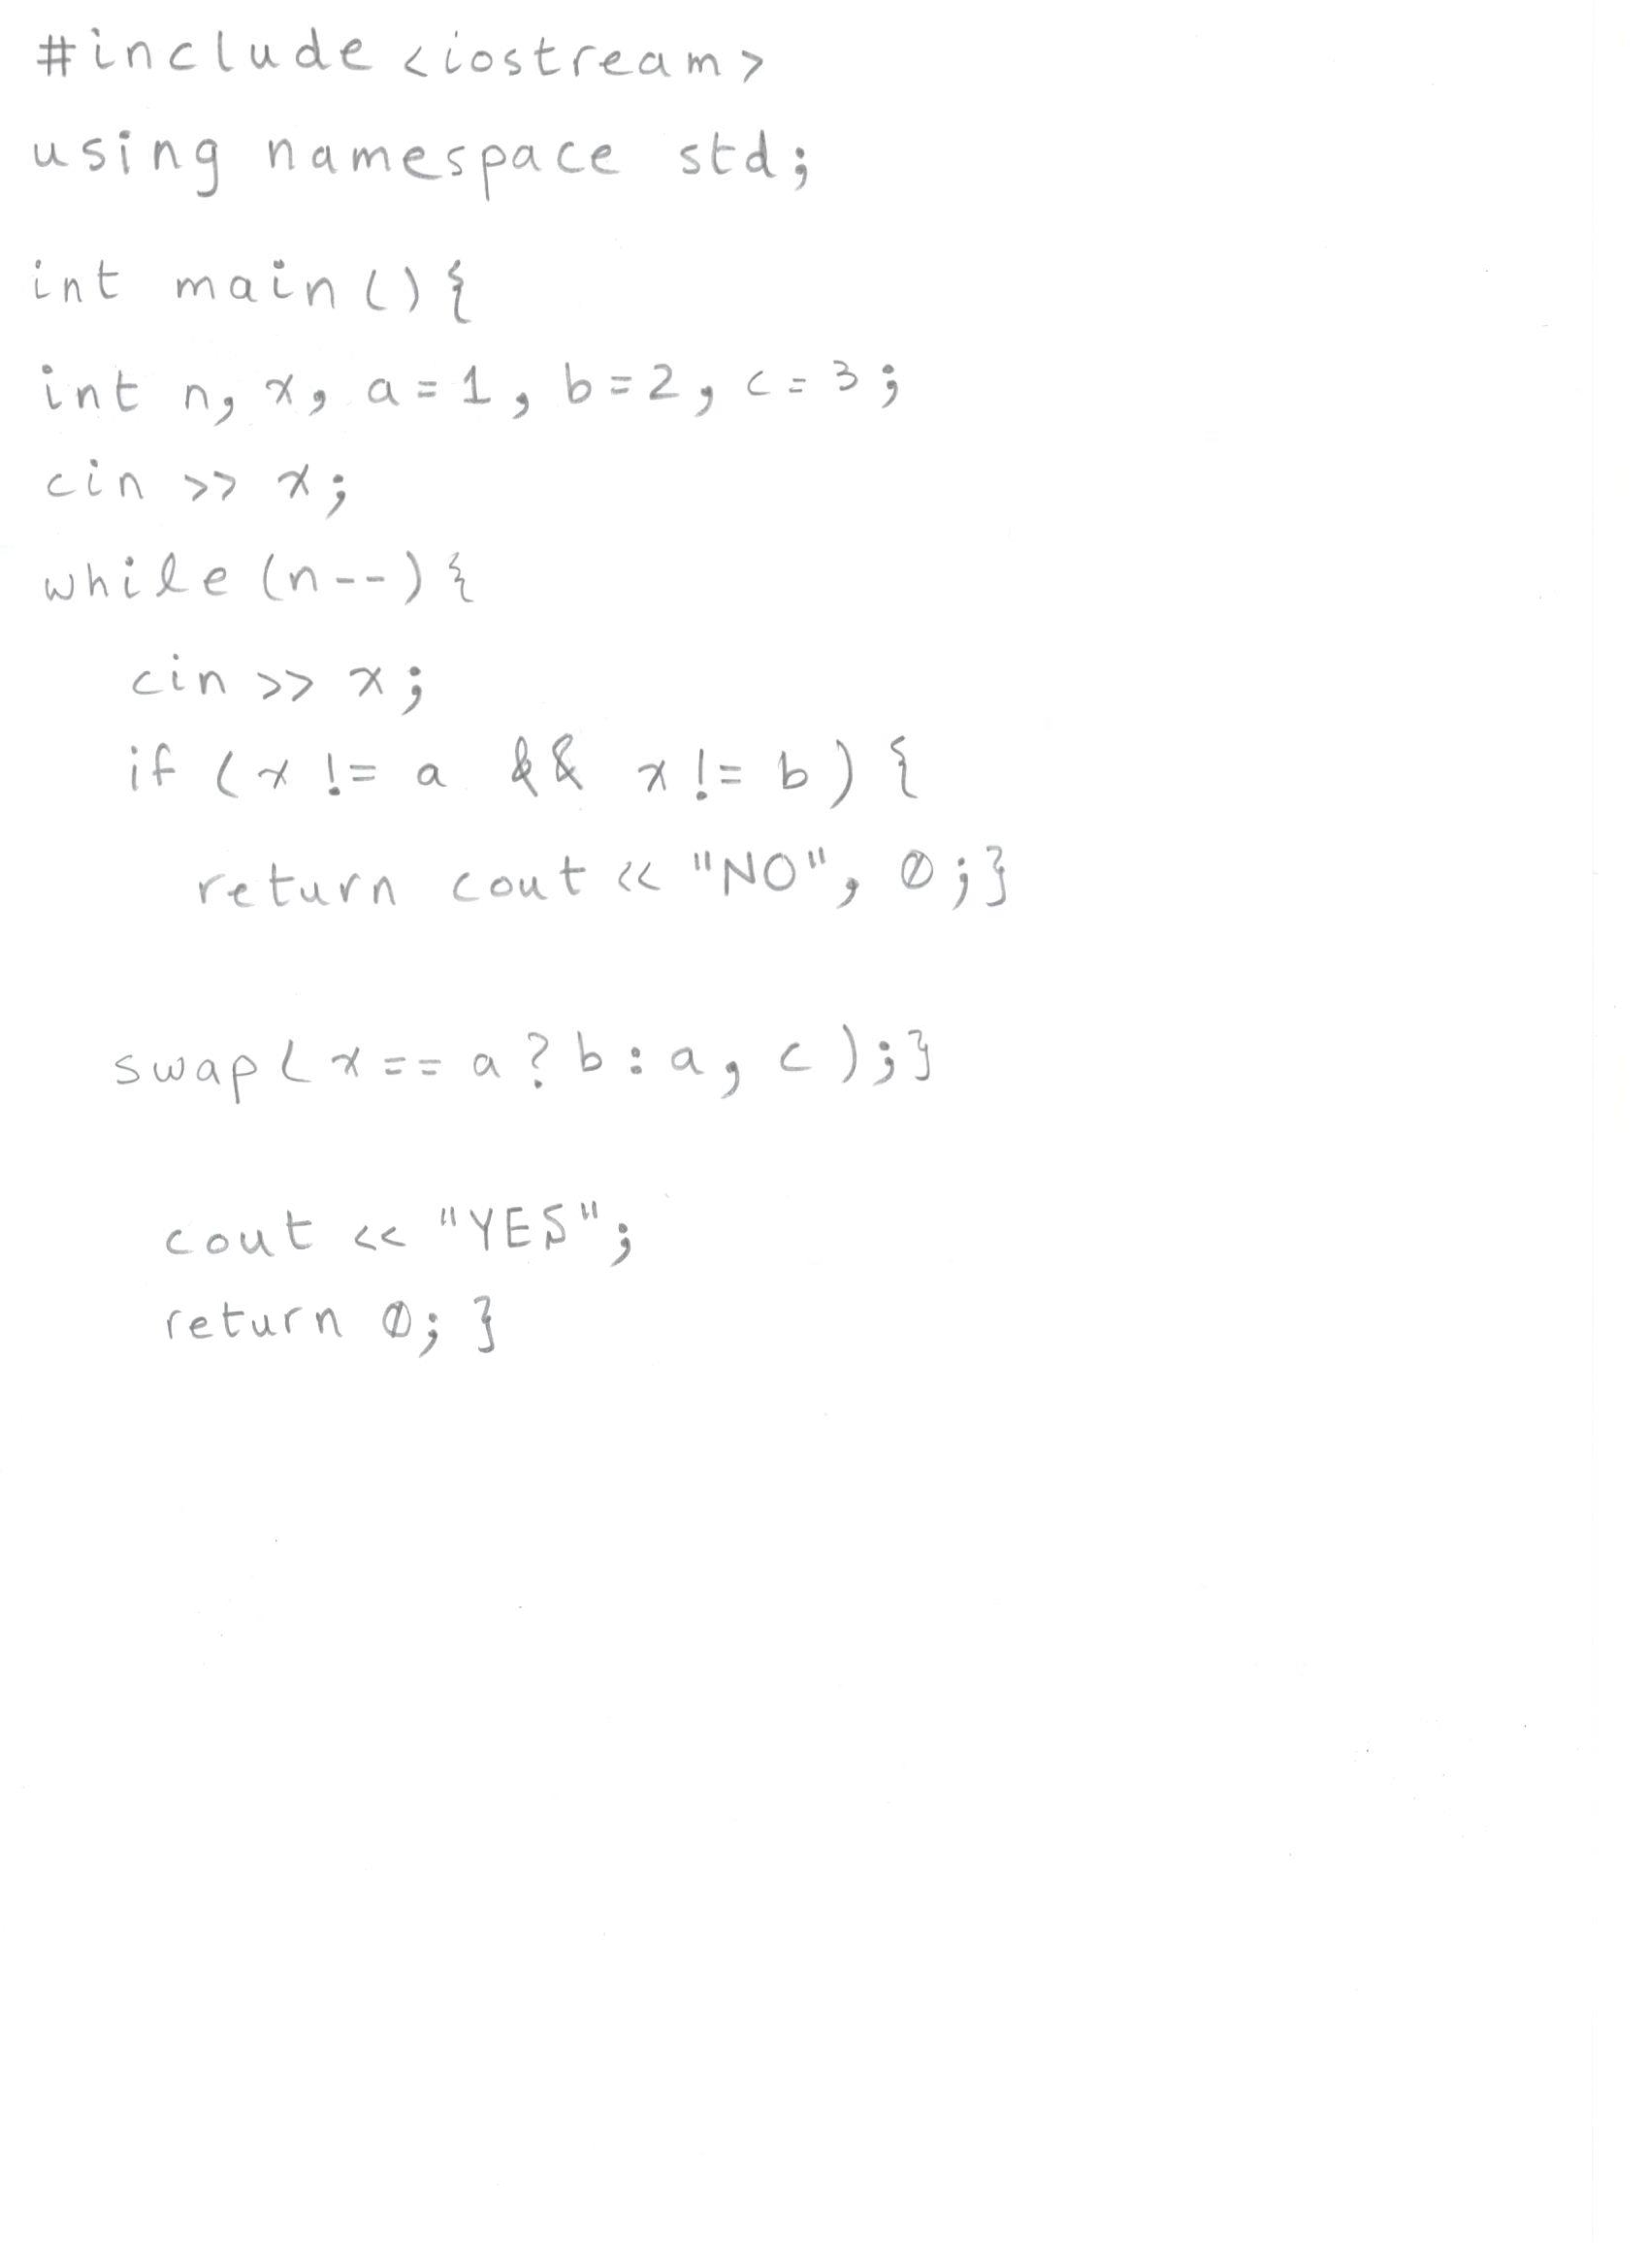 #include <iostream>
using namespace std;
int main(){
int n, x, a=1, b=2, c=3;
cin >> x;
while(n--){
cin >> x;
if (x != a && x != b) {
return cout << "NO", 0;}
swap(x==a?b:a, c);}
cout << "YES";
return 0; }